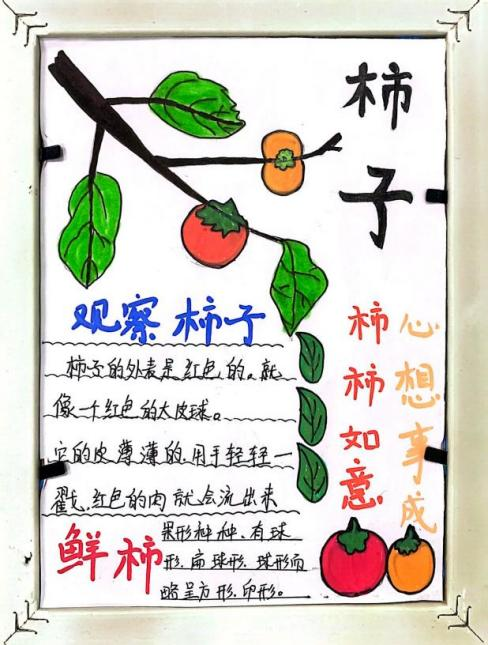 柿子
观察柿子
柿子的外表是红色的。就
像一个红色的大皮球。
它的皮薄薄的.用手轻轻一
戳.红色的肉就会流出来
鲜柿
果形种种.有球
形.扁球形.球形而
略呈方形.卵形。
柿柿如意
心想事成